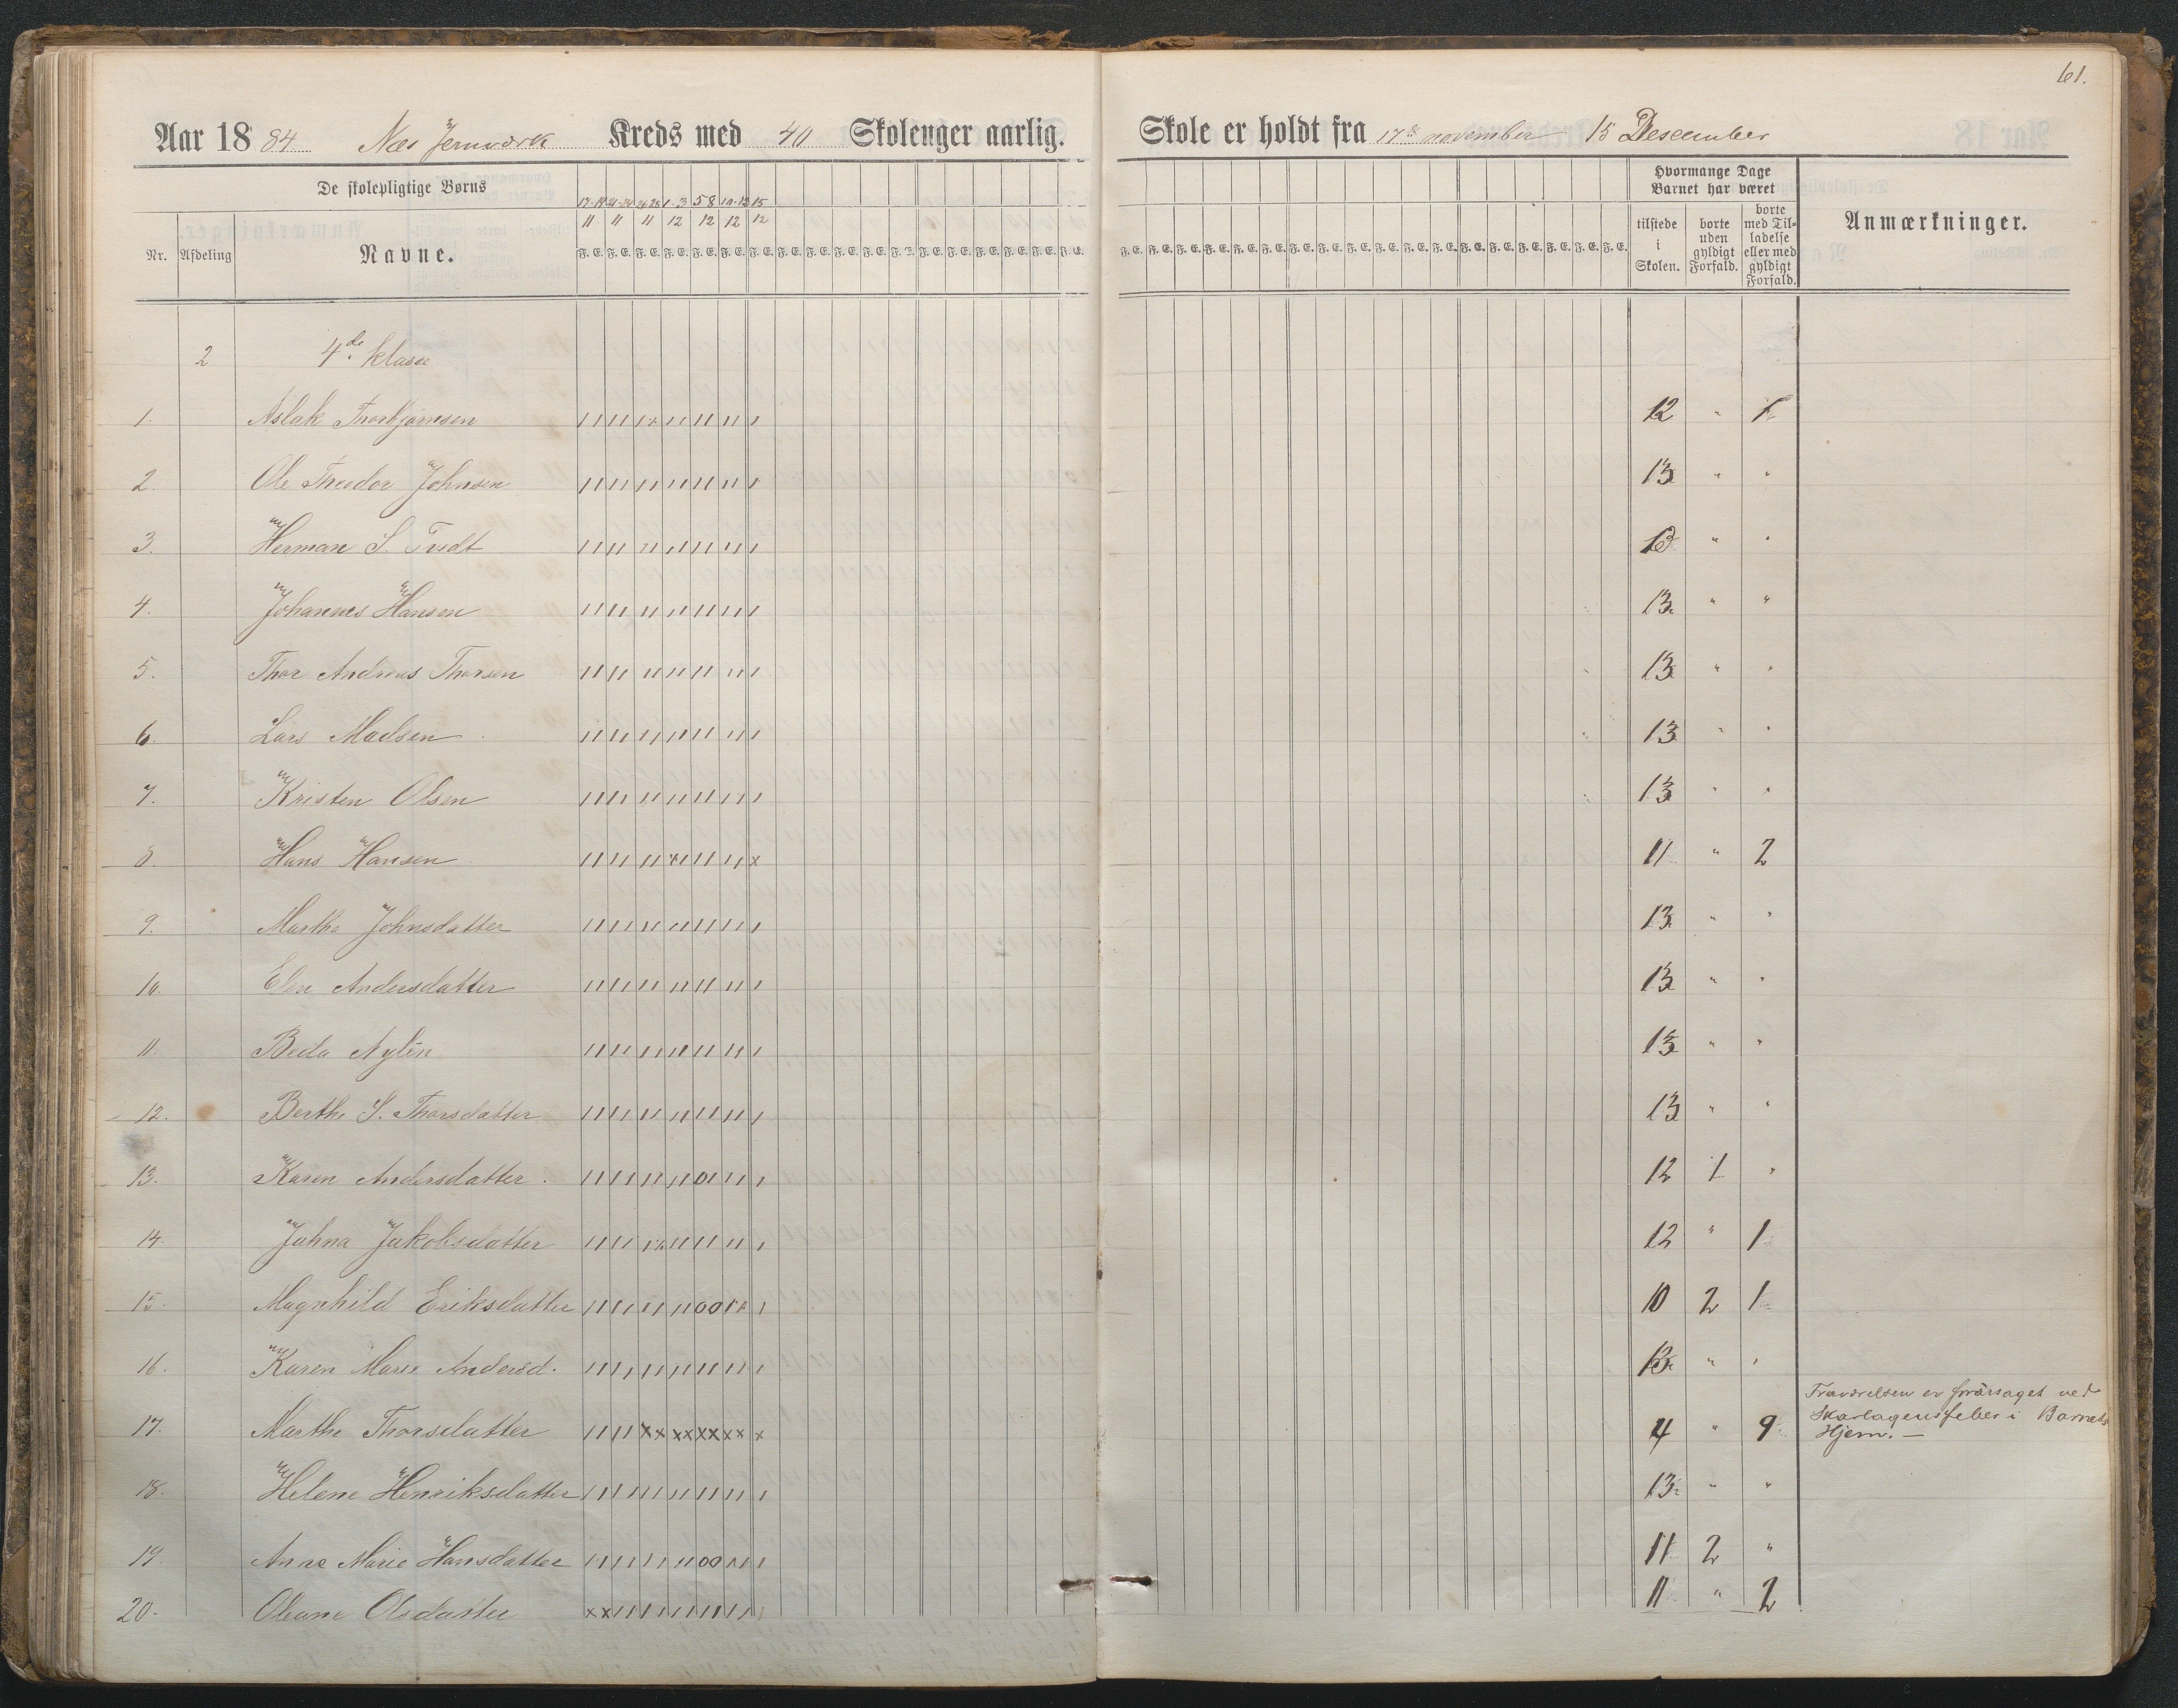 61.
Aar 1884 Næs Jernværk Kreds med 40 Skolenger aarlig. Skole er holdt fra 17de november 15 Descember
De skolepligtige Børns
Hvormange Dage Barnet har været
Nr. Afdeling Navne.
17. 19 21. 24 26 28 1. 3 5 8 10. 12 15
11 11 11 12 12 12 12
F. E. F. E. F. E. F. E. F. E. F. E. F. E. F. E. F. E. F. E. F. E. F. E. F. E. F. E. F. E. F. E. F. E. F. E.
tilstede i Skolen.
borte uden gyldigt Forfald.
borte med Tilladelse eller med gyldigt Forfald.
Anmærkninger.
2 4de klasse
1. Aslak Thorbjørnsen 12 " 1
2. Ole Theodor Johnsen 13 " "
3. Herman S. Tvedt 13 " "
4. Johannes Hansen 13. " "
5. Thor Andreas Thorsen 13 " "
6. Lars Madsen 13 " "
7. Kristen Olsen 13 " "
8. Hans Hansen 11 " 2
9. Marthe Johnsdatter 13 " "
10. Elen Andersdatter 13 " "
11. Beda Nylén 13 " "
12. Berthe S. Thorsdatter 13 " "
13. Karen Andersdatter 12 1 "
14. Johna Jakobsdatter 12 " 1
15. Magnhild Eriksdatter 10 2 1
16. Karen Marie Andersd. 13 " "
17. Marthe Thorsdatter 4 " 9 Fraværelsen er forårsaget ved
Skarlagensfeber i Barnets
Hjem. —
18. Helene Henriksdatter 13 " "
19. Anne Marie Hansdatter 11 2 "
20. Oleane Olsdatter 11 " 2